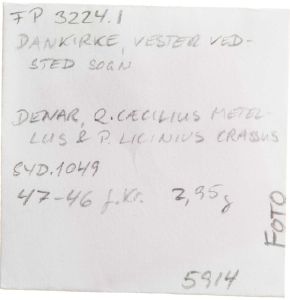 FP 3224.1
DANKIRKE, VESTER VED-
STED SOGN
DENAR, Q. CÆCILIUS METEL-
LUS & P. LICINIUS CRASSUS
SYD. 1049
47-46 f.Kr. 2,95g
FOTO
5914